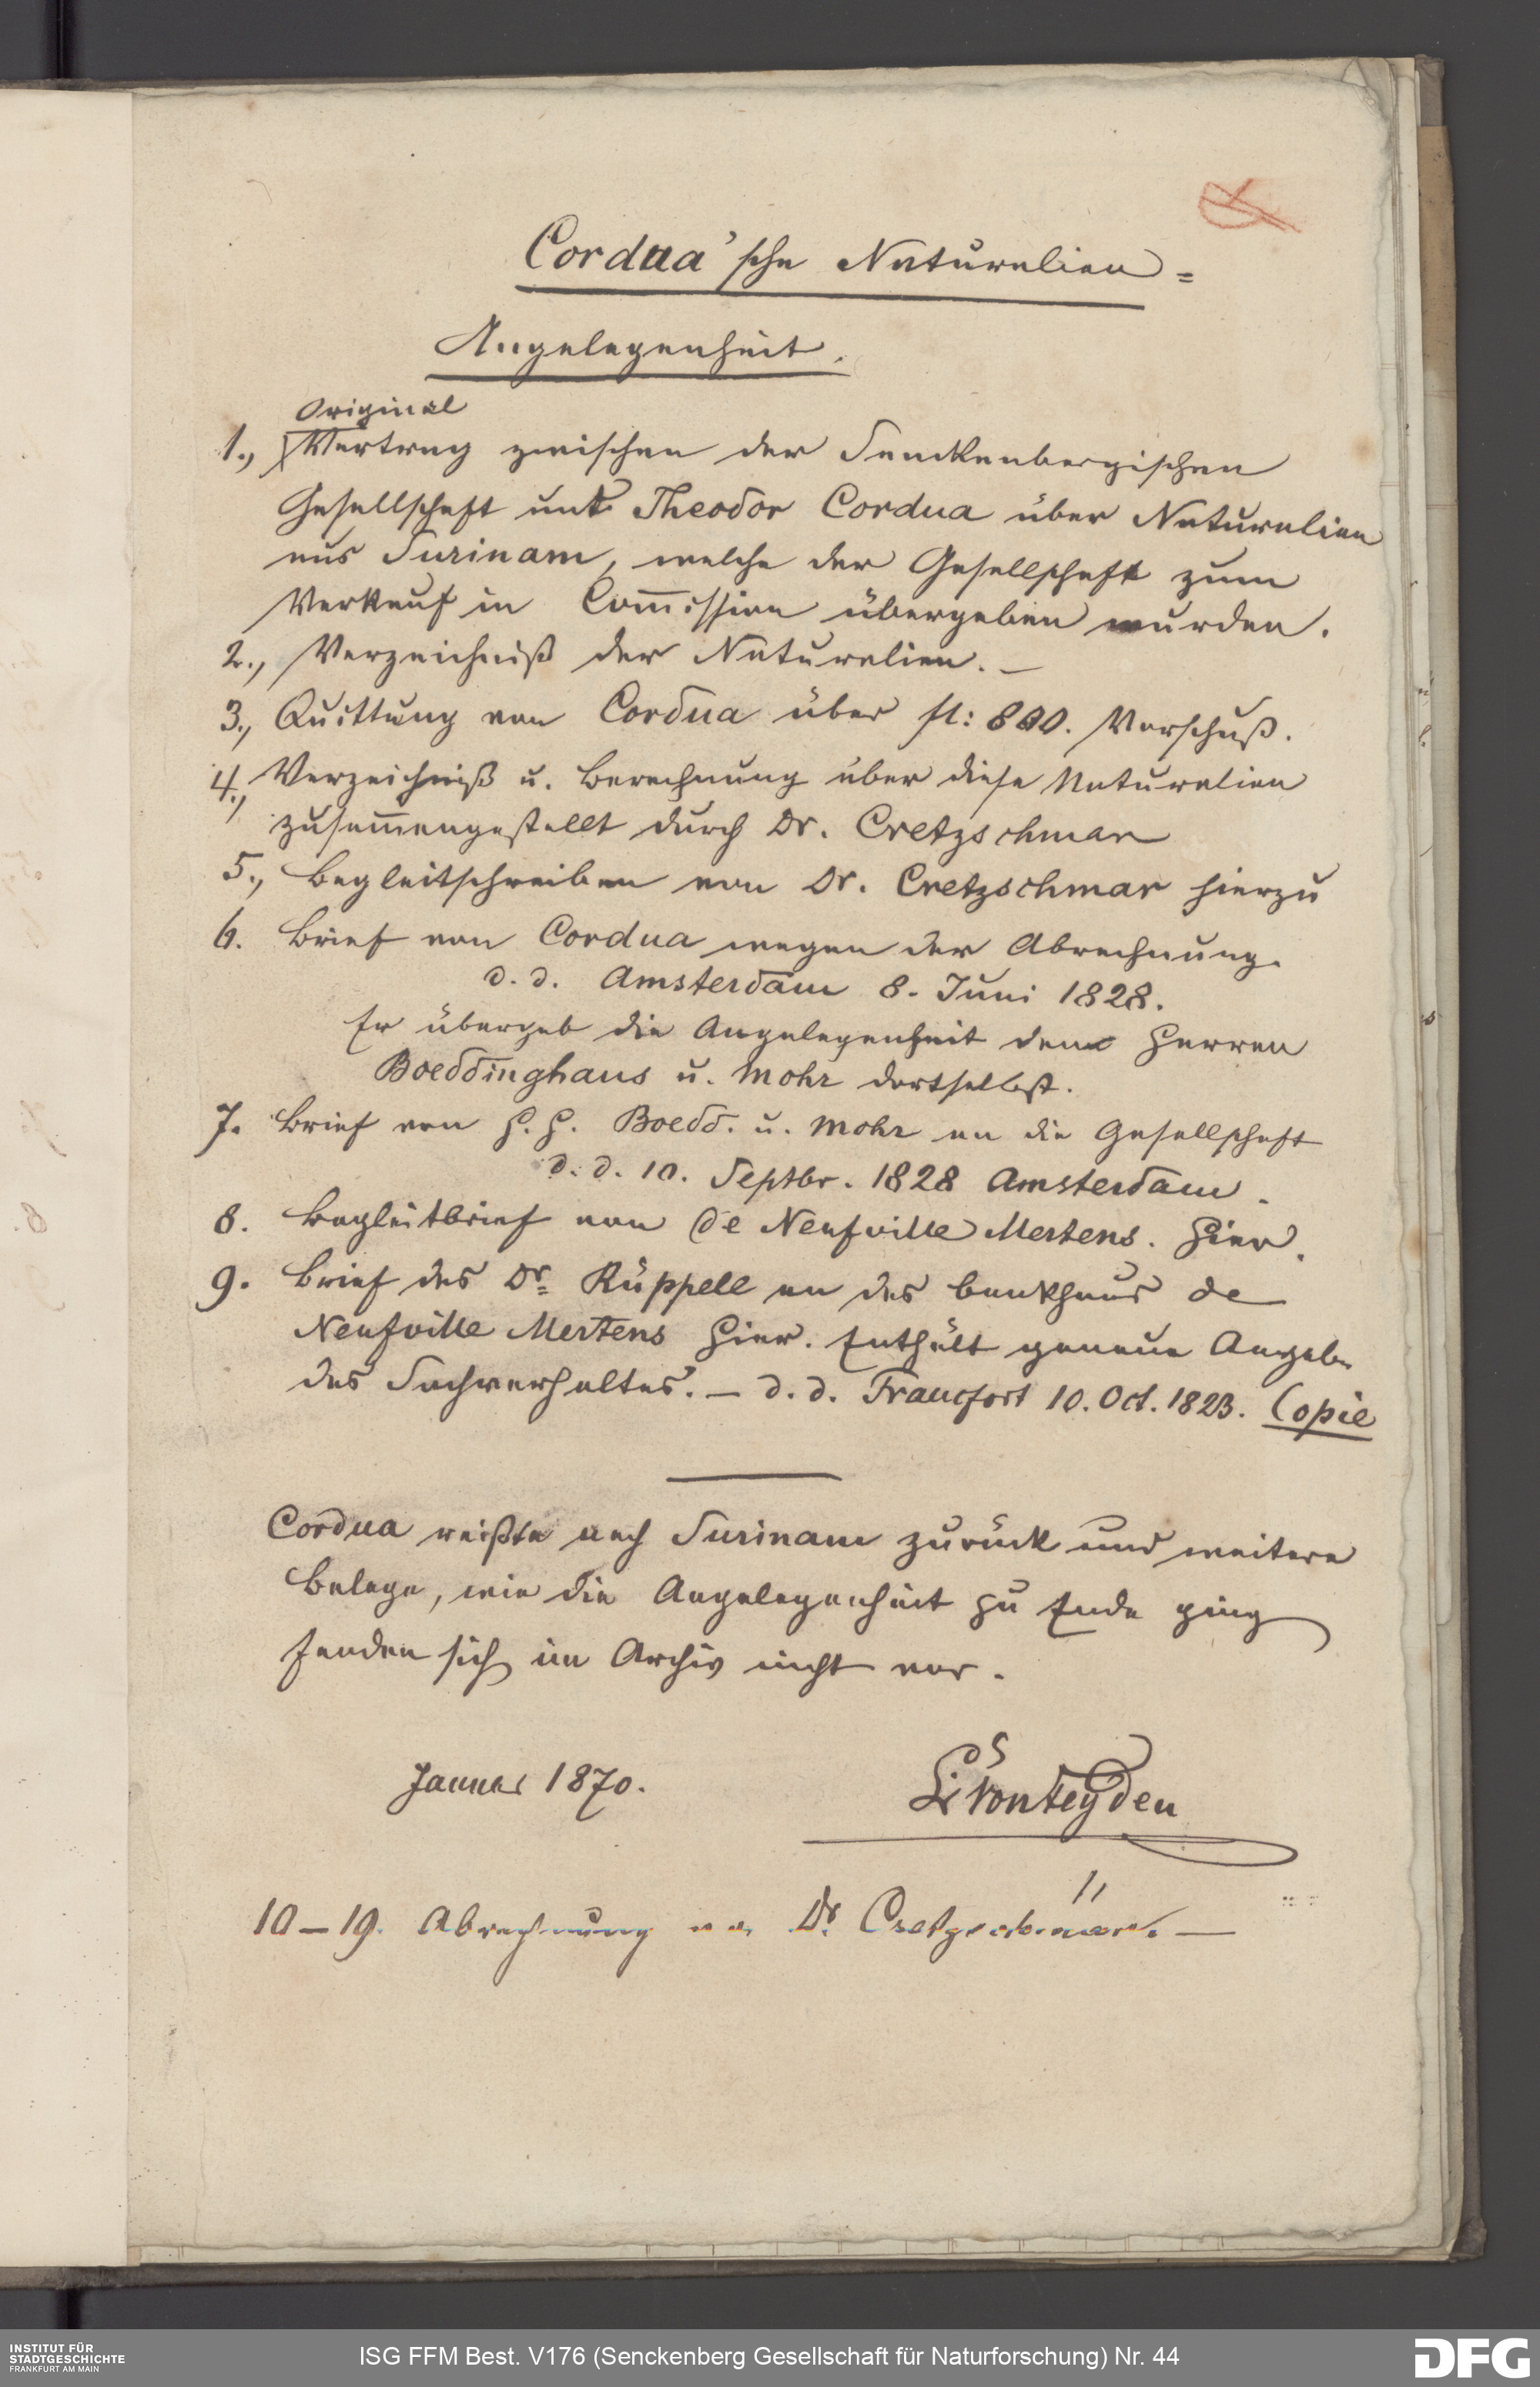 Cordua'sche Naturalien=
Angelegenheit.
Original
1., Vertrag zwischen der Senckenbergischen
Gesellschaft und Theodor Cordua über Naturalien
aus Surinam, welche der Gesellschaft zum
Verkauf in Com̅ission übergeben wurden.
2., Verzeichniß der Naturalien. —
3., Quittung von Cordua über fl: 800. Vorschuß.
4., Verzeichniß u. Berechnung über diese Naturalien
zusam̅engestellt durch Dr. Cretzschmar
5., Begleitschreiben von Dr. Cretzschmar hierzu
6. Brief von Cordua wegen der Abrechnung.
d. d. Amsterdam 8. Juni 1828.
Er übergab die Angelegenheit den Herren
Boeddinghaus u. Mohr dortselbst.
7. Brief von H. H. Boedd. u. Mohr an die Gesellschaft
d. d. 10. Septbr. 1828 Amsterdam.
8. Begleitbrief von de Neufville Mertens. Hier.
9. Brief des Dr. Rüppell an das Bankhaus de
Neufville Mertens hier. Enthält genaue Angabe
des Sachverhaltes. — d. d. Francfort 10. Oct. 1828. Copie
Cordua reißte nach Surinam zurück und weitere
Belege, wie die Angelegenheit zu Ende ging
fanden sich im Archiv nicht vor.
Januar 1870.
Dr von Heyden
10—19. Abrechnung von Dr. Cretzschmar. —
INSTITUT FÜR
STADTGESCHICHTE
FRANKFURT AM MAIN
ISG FFM Best. V176 (Senckenberg Gesellschaft für Naturforschung) Nr. 44
DFG